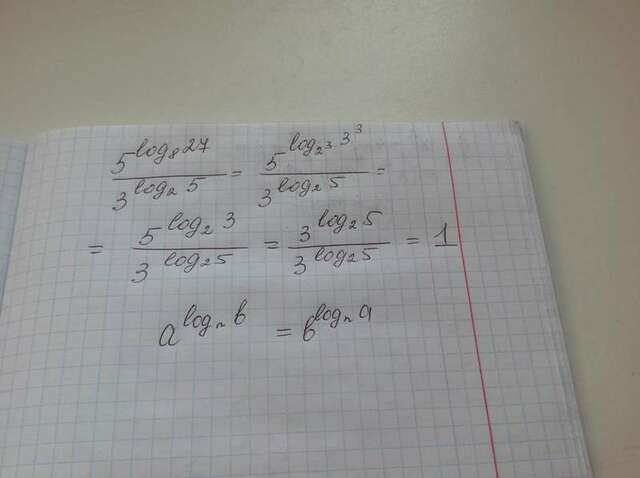 5^{log_8 27} / 3^{log_2 5} = 5^{log_{2^3} 3^3} / 3^{log_2 5} =
= 5^{log_2 3} / 3^{log_2 5} = 3^{log_2 5} / 3^{log_2 5} = 1
a^{log_n b} = b^{log_n a}